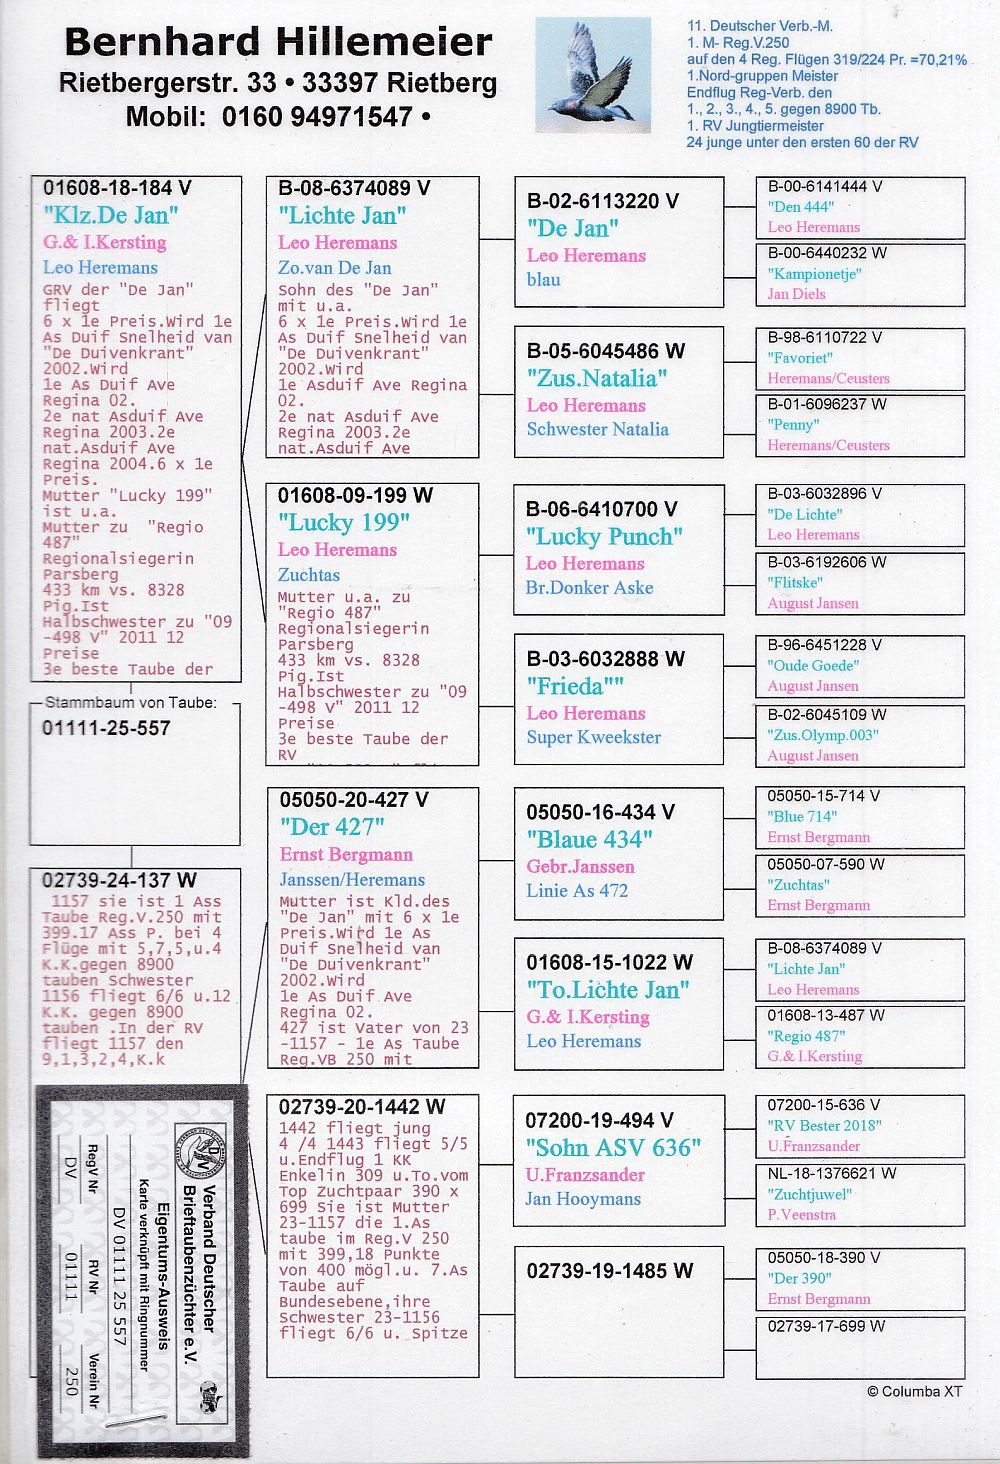 Bernhard Hillemeier
Rietbergerstr. 33 • 33397 Rietberg
Mobil: 0160 94971547 •
11. Deutscher Verb.-M.
1. M- Reg.V.250
auf den 4 Reg. Flügen 319/224 Pr. =70,21%
1.Nord-gruppen Meister
Endflug Reg-Verb. den
1., 2., 3., 4., 5. gegen 8900 Tb.
1. RV Jungtiermeister
24 junge unter den ersten 60 der RV
01608-18-184 V
"Klz.De Jan"
G.& I.Kersting
Leo Heremans
GRV der "De Jan"
fliegt
6 x 1e Preis.Wird 1e
As Duif Snelheid van
"De Duivenkrant"
2002.Wird
1e As Duif Ave
Regina 02.
2e nat Asduif Ave
Regina 2003.2e
nat.Asduif Ave
Regina 2004.6 x 1e
Preis.
Mutter "Lucky 199"
ist u.a.
Mutter zu "Regio
487"
Regionalsiegerin
Parsberg
433 km vs. 8328
Pig.Ist
Halbschwester zu "09
-498 V" 2011 12
Preise
3e beste Taube der
Stammbaum von Taube:
01111-25-557
02739-24-137 W
1157 sie ist 1 Ass
Taube Reg.V.250 mit
399.17 Ass P. bei 4
Flüge mit 5,7,5,u.4
K.K.gegen 8900
tauben Schwester
1156 fliegt 6/6 u.12
K.K. gegen 8900
tauben .In der RV
fliegt 1157 den
9,1,3,2,4,K.k
Verband Deutscher
Brieftaubenzüchter e.V.
Eigentums-Ausweis
Karte verknüpft mit Ringnummer
DV 01111 25 557
RegV Nr
RV Nr
Verein Nr
DV
01111
250
B-08-6374089 V
"Lichte Jan"
Leo Heremans
Zo.van De Jan
Sohn des "De Jan"
mit u.a.
6 x 1e Preis.Wird 1e
As Duif Snelheid van
"De Duivenkrant"
2002.Wird
1e Asduif Ave Regina
02.
2e nat Asduif Ave
Regina 2003.2e
nat.Asduif Ave
01608-09-199 W
"Lucky 199"
Leo Heremans
Zuchtas
Mutter u.a. zu
"Regio 487"
Regionalsiegerin
Parsberg
433 km vs. 8328
Pig.Ist
Halbschwester zu "09
-498 V" 2011 12
Preise
3e beste Taube der
RV
05050-20-427 V
"Der 427"
Ernst Bergmann
Janssen/Heremans
Mutter ist Kld.des
"De Jan" mit 6 x 1e
Preis.Wird 1e As
Duif Snelheid van
"De Duivenkrant"
2002.Wird
1e As Duif Ave
Regina 02.
427 ist Vater von 23
-1157 - 1e As Taube
Reg.VB 250 mit
02739-20-1442 W
1442 fliegt jung
4 /4 1443 fliegt 5/5
u.Endflug 1 KK
Enkelin 309 u.To.vom
Top Zuchtpaar 390 x
699 Sie ist Mutter
23-1157 die 1.As
taube im Reg.V 250
mit 399,18 Punkte
von 400 mögl.u. 7.As
Taube auf
Bundesebene,ihre
Schwester 23-1156
fliegt 6/6 u. Spitze
B-02-6113220 V
"De Jan"
Leo Heremans
blau
B-05-6045486 W
"Zus.Natalia"
Leo Heremans
Schwester Natalia
B-06-6410700 V
"Lucky Punch"
Leo Heremans
Br.Donker Aske
B-03-6032888 W
"Frieda""
Leo Heremans
Super Kweekster
05050-16-434 V
"Blaue 434"
Gebr.Janssen
Linie As 472
01608-15-1022 W
"To.Lichte Jan"
G.& I.Kersting
Leo Heremans
07200-19-494 V
"Sohn ASV 636"
U.Franzsander
Jan Hooymans
02739-19-1485 W
B-00-6141444 V
"Den 444"
Leo Heremans
B-00-6440232 W
"Kampionetje"
Jan Diels
B-98-6110722 V
"Favoriet"
Heremans/Ceusters
B-01-6096237 W
"Penny"
Heremans/Ceusters
B-03-6032896 V
"De Lichte"
Leo Heremans
B-03-6192606 W
"Flitske"
August Jansen
B-96-6451228 V
"Oude Goede"
August Jansen
B-02-6045109 W
"Zus.Olymp.003"
August Jansen
05050-15-714 V
"Blue 714"
Ernst Bergmann
05050-07-590 W
"Zuchtas"
Ernst Bergmann
B-08-6374089 V
"Lichte Jan"
Leo Heremans
01608-13-487 W
"Regio 487"
G.& I.Kersting
07200-15-636 V
"RV Bester 2018"
U.Franzsander
NL-18-1376621 W
"Zuchtjuwel"
P.Veenstra
05050-18-390 V
"Der 390"
Ernst Bergmann
02739-17-699 W
© Columba XT